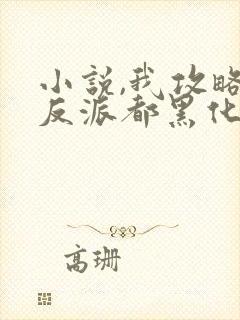 小説,我攻略
反派都黑化
高珊